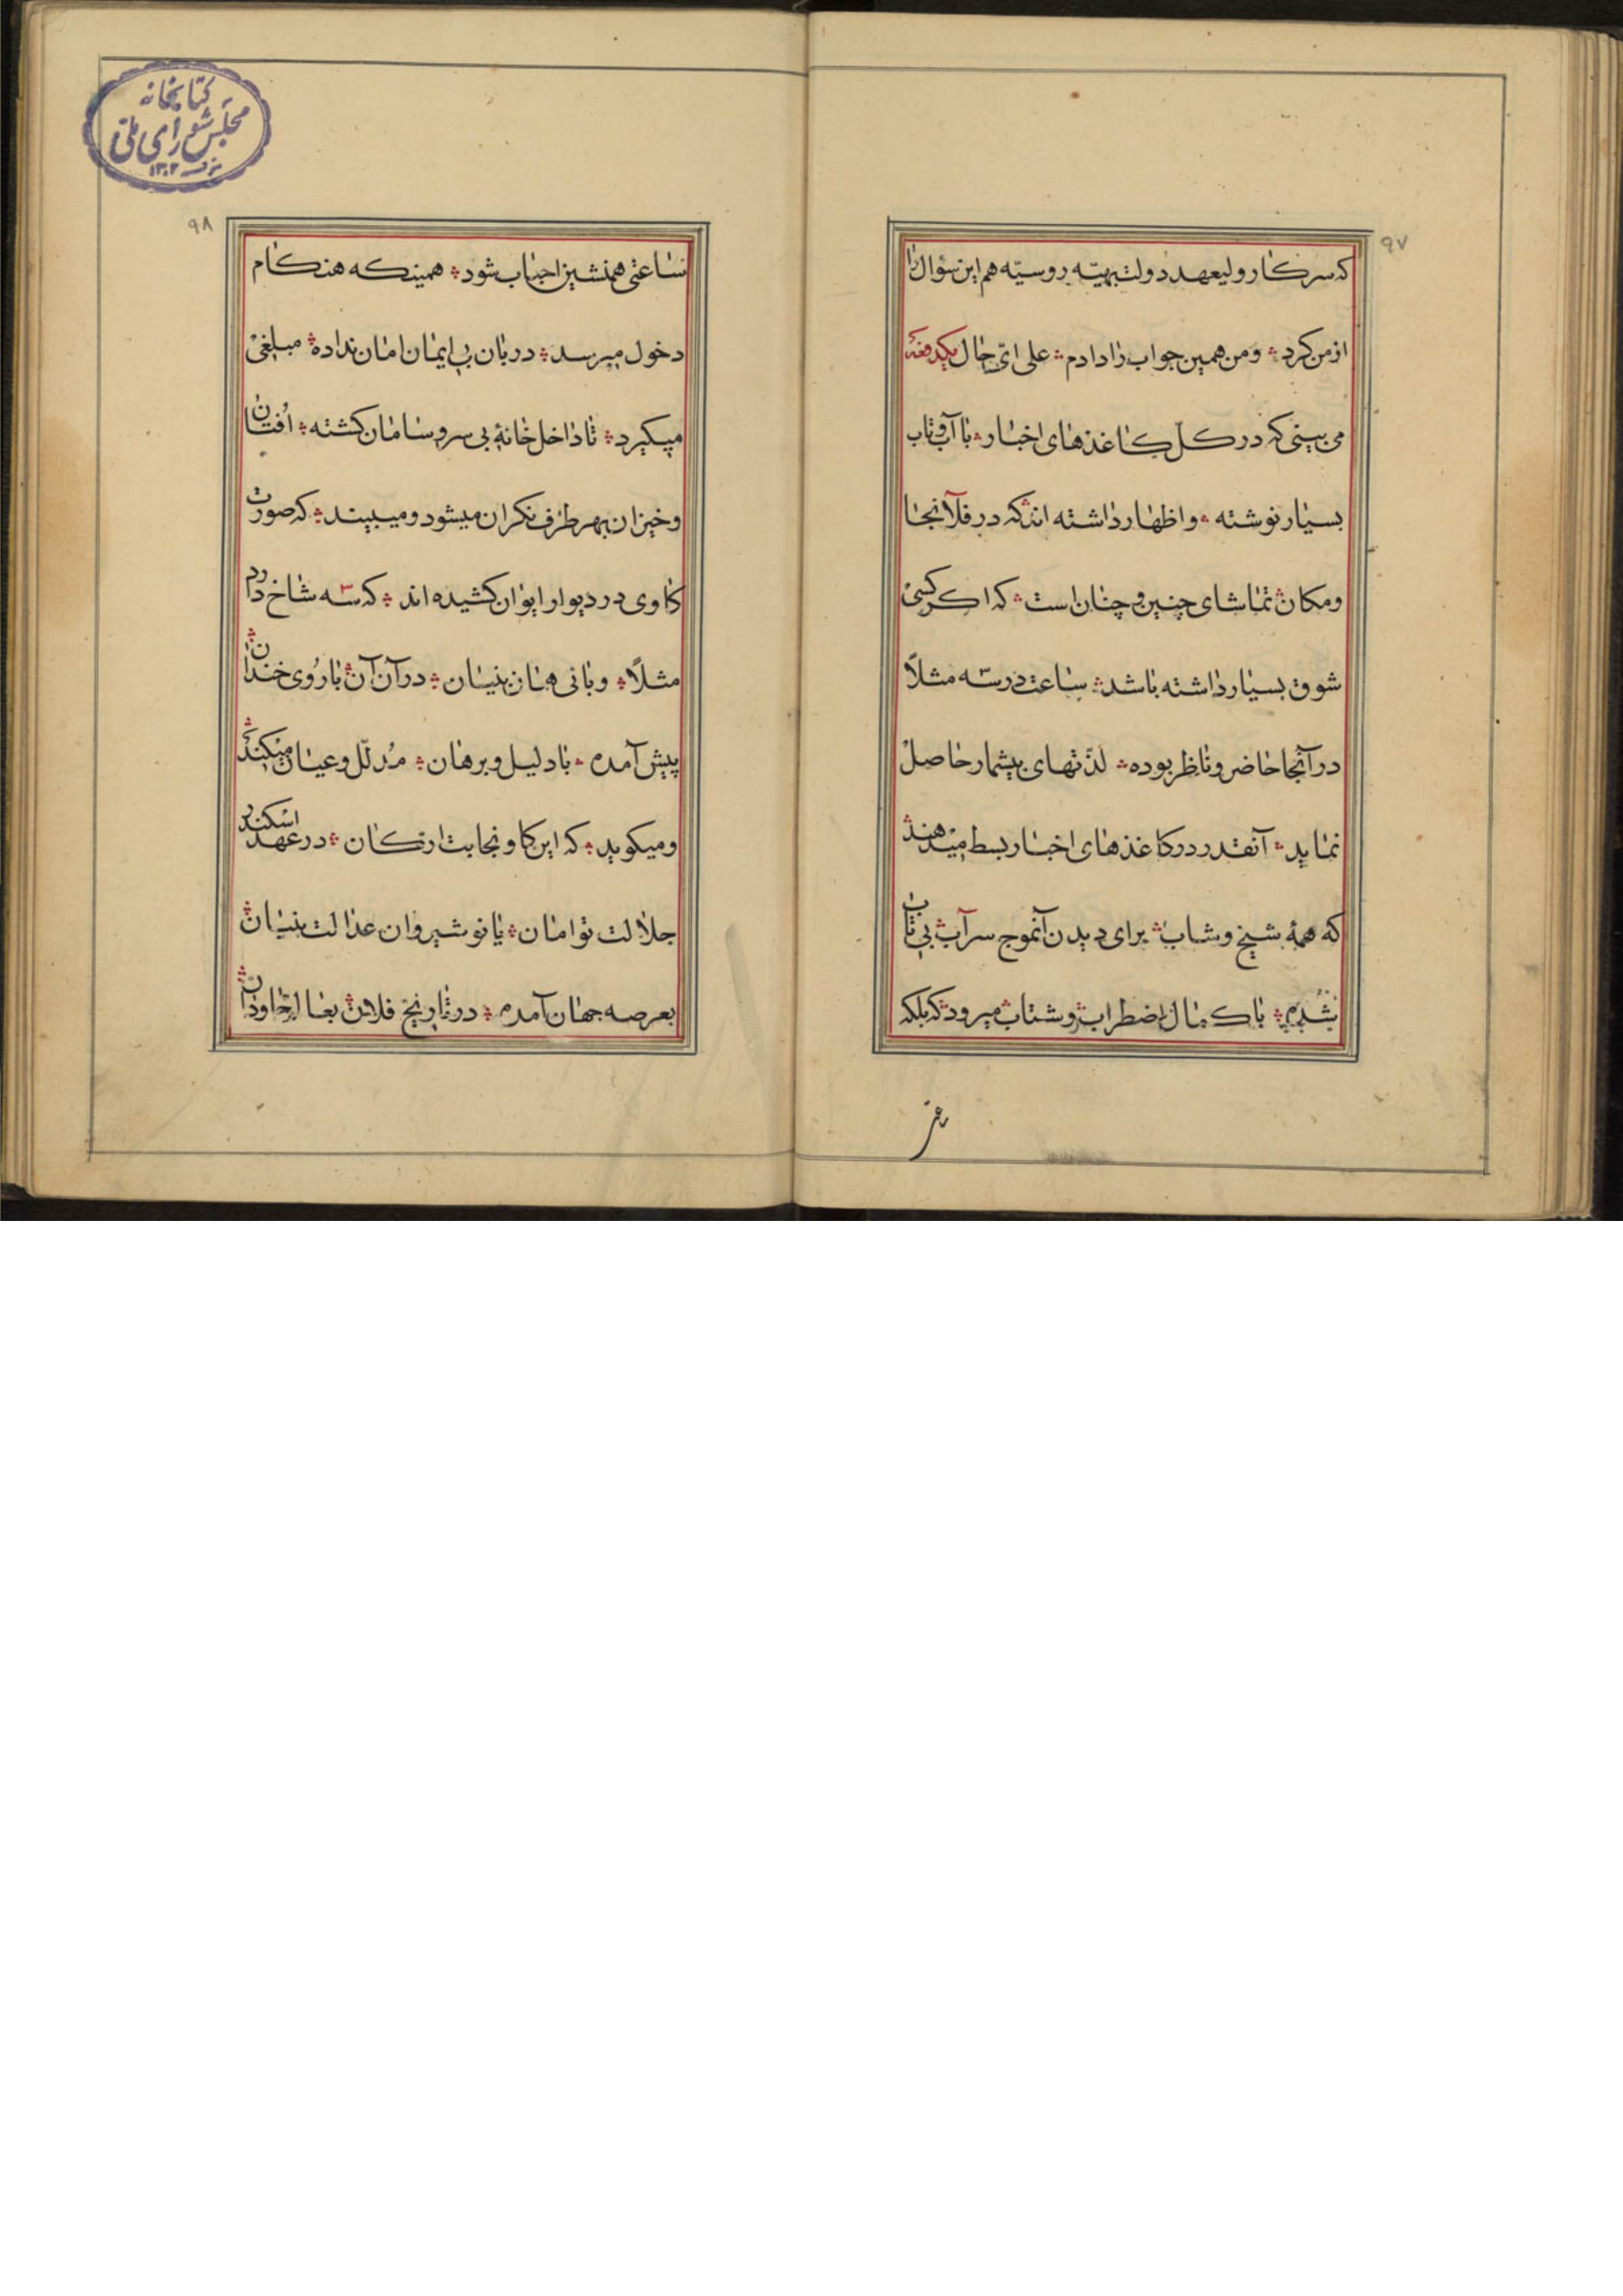 ۹۷
که سرکار ولیعهد دولت بهیّه روسیّه هم این سؤال را
از من کرد؞ ومن همین جواب را دادم؞ علی ایّ حال یکدفعه
می بینی که در کلّ کاغذهای اخبار؞ با آب و تاب
بسیار نوشته؞ و اظهار داشته اند که در فلان جا
ومکان؞ تماشای چنین و چنان است؞ که اکر کسی
شوق بسیار داشته باشد؞ ساعت در سّه مثلاً
در آنجا حاضر و ناظر بوده؞ لذّتهای بیشمار حاصل
نماید؞ آنقدر در کاغذهای اخبار بسط میدهند؞
که همهٔ شیخ وشاب؞ برای دیدن آنموج سراب؞ بی تاب
شده؞ با کمال اضطراب؞ وشتاب؞ میرود؞ که بلکه
۹۸
کتابخانه
مجلس شورای ملی
۱۳۰۲
ساعتی همنشین احباب شود؞ همینکه هنکام
دخول میرسد؞ دربان بی ایمان امان نداده؞ مبلغی
میکیرد؞ تا داخل خانهٔ بی سر و سامان کشته؞ اُفتان
وخیزان بهر طرف نکران میشود ومیبیند؞ که صورت
کاوی در دیوار ایوان کشیده اند؞ که سه شاخ دارد
مثلاً؞ وبانی همان بنیان؞ در آن آن؞ با رُوی خندان؞
پیش آمده؞ با دلیل و برهان؞ مُدلّل وعیان میکند؞
ومیکوید؞ که این کاو نجابت ارکان؞ در عهد اسکندر
جلالت توامان؞ یا نوشیروان عدالت بنیان؞
بعرصه جهان آمده؞ در تاریخ فلان؞ بعالم جاودان؞